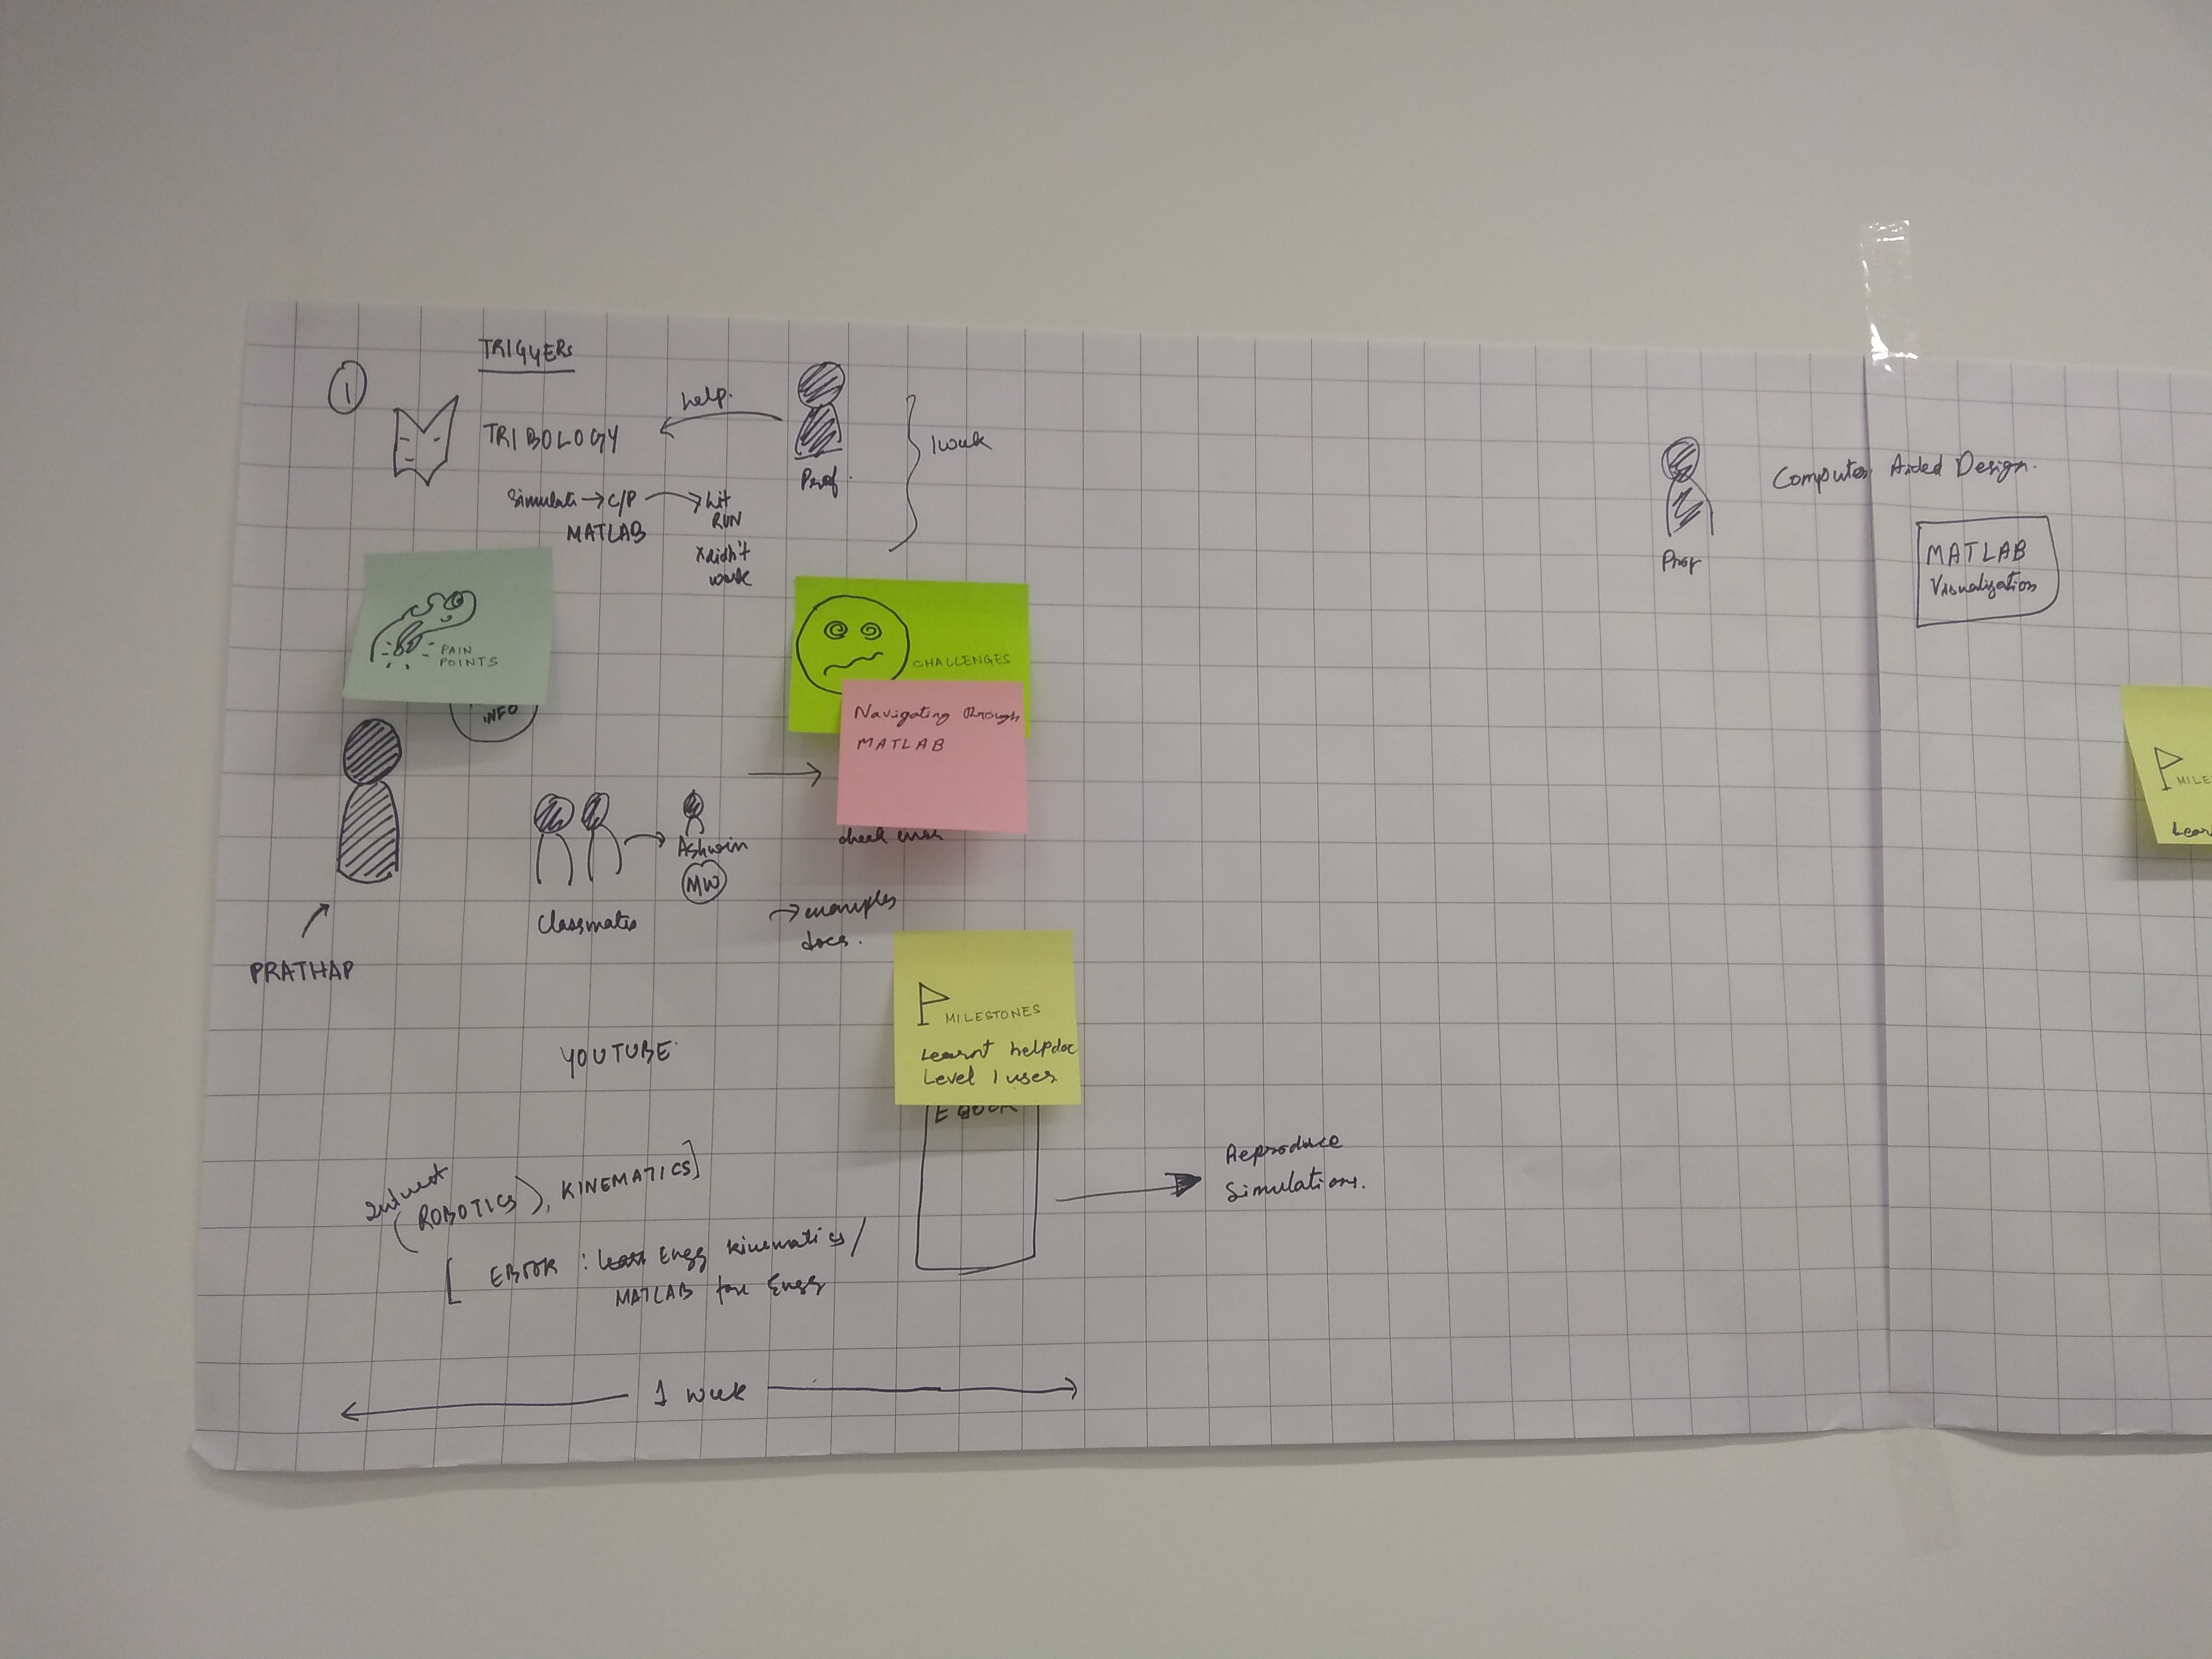 TRIGGERS
1
TRIBOLOGY
help.
Prof.
1 week
Simulate → C/P → hit
RUN
MATLAB
x didn't
work
PAIN
POINTS
INFO
CHALLENGES
Navigating through
MATLAB
check error
Ashwin
MW
Classmates
→ examples
docs.
PRATHAP
YOUTUBE
MILESTONES
Learnt helpdoc
Level 1 uses
EBOOK
Reproduce
Simulations.
Interest
(ROBOTICS), KINEMATICS]
[ EBOOK : Learn Engg kinematics/
MATLAB for Engg
1 week
Prof
Computer Aided Design.
MATLAB
Visualization
MILE
Lear